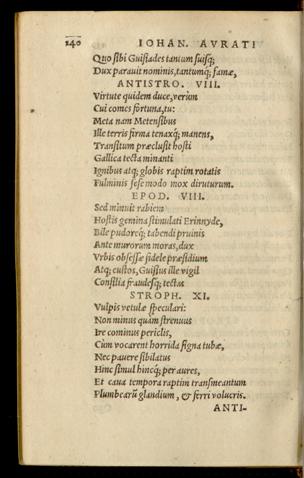 140 IOHAN. AVRATI
Quo sibi Guisiades tantum suisq;
Dux parauit nominis, tantumq; famæ,
ANTISTRO. VIII.
Virtute quidem duce, verùm
Cui comes fortuna, tu:
Meta nam Metensibus
Ille terris firma tenaxq; manens,
Transitum præclusit hosti
Gallica tecta minanti
Ignibus atq; globis raptim rotatis
Fulminis sese modo mox diruturum.
EPOD. VIII.
Sed minuit rabiem
Hostis gemina stimulati Erinnye,
Bile pudoréq; tabendi pruinis
Ante murorum moras, dux
Vrbis obsessæ fidele præsidium
Atq; custos, Guisius ille vigil
Consilia fraudesq; tectas
STROPH. XI.
Vulpis vetulæ speculari:
Non minus quàm strenuus
Ire cominus periclis,
Cùm vocarent horrida signa tubæ,
Nec pauere sibilatus
Hinc simul hincq; per aures,
Et caua tempora raptim transmeantum
Plumbearũ glandium, & ferri volucris.
ANTI-